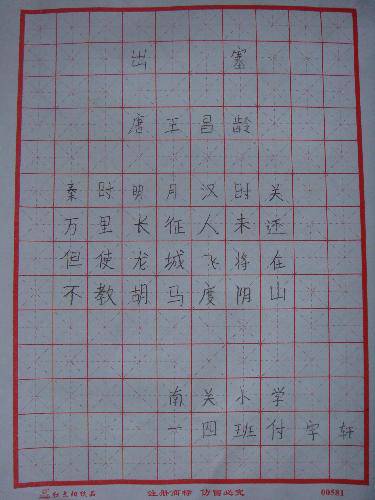 出塞
唐王昌龄
秦时明月汉时关
万里长征人未还
但使龙城飞将在
不教胡马度阴山
南关小学
一四班付宇轩
注册商标 仿冒必究
00581